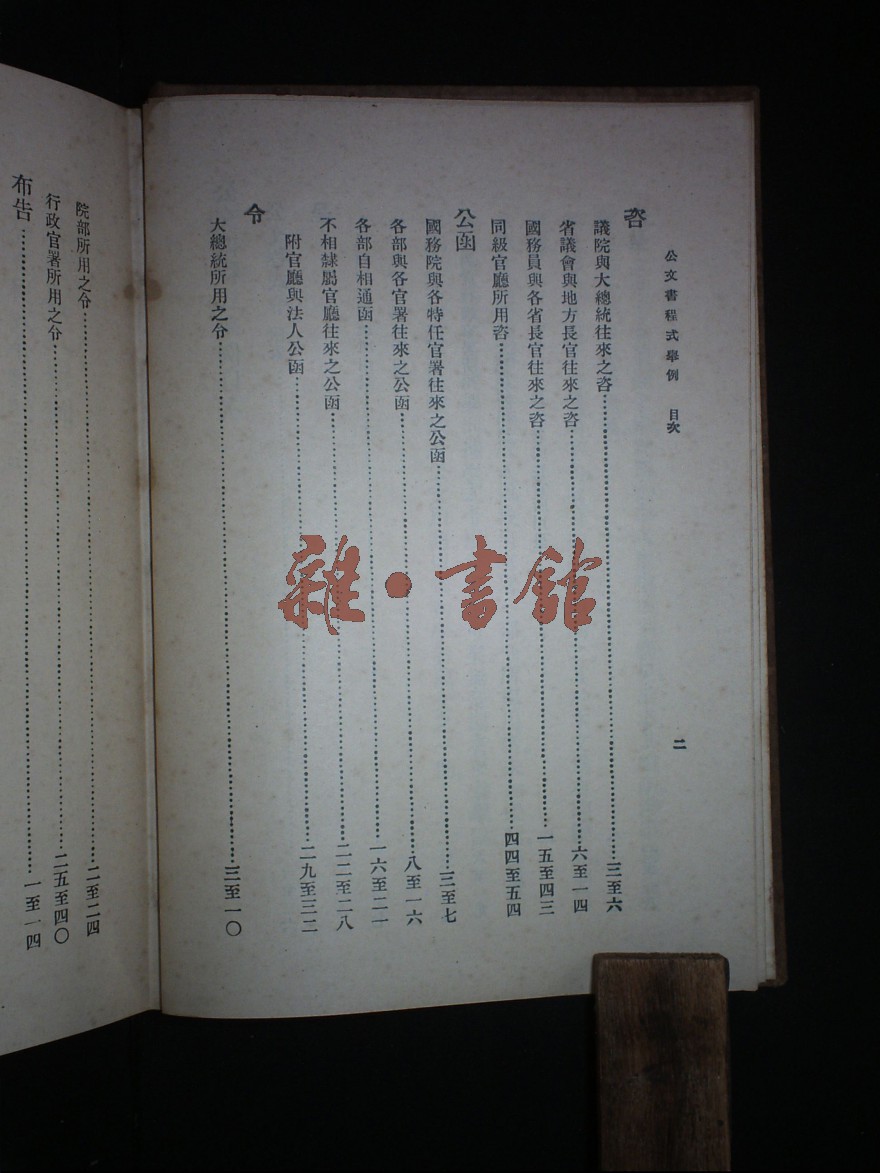 公文書程式舉例 目次 二
咨
議院與大總統往來之咨……三至六
省議會與地方長官往來之咨……六至一四
國務員與各省長官往來之咨……一五至四三
同級官廳所用咨……四四至五四
公函
國務院與各特任官署往來之公函……三至七
各部與各官署往來之公函……八至一六
各部自相通函……一六至二一
不相隸屬官廳往來之公函……二二至二八
附官廳與法人公函……二九至三二
令
大總統所用之令……三至一〇
院部所用之令……二至二四
行政官署所用之令……二五至四〇
布告……一至一四
雜·書館